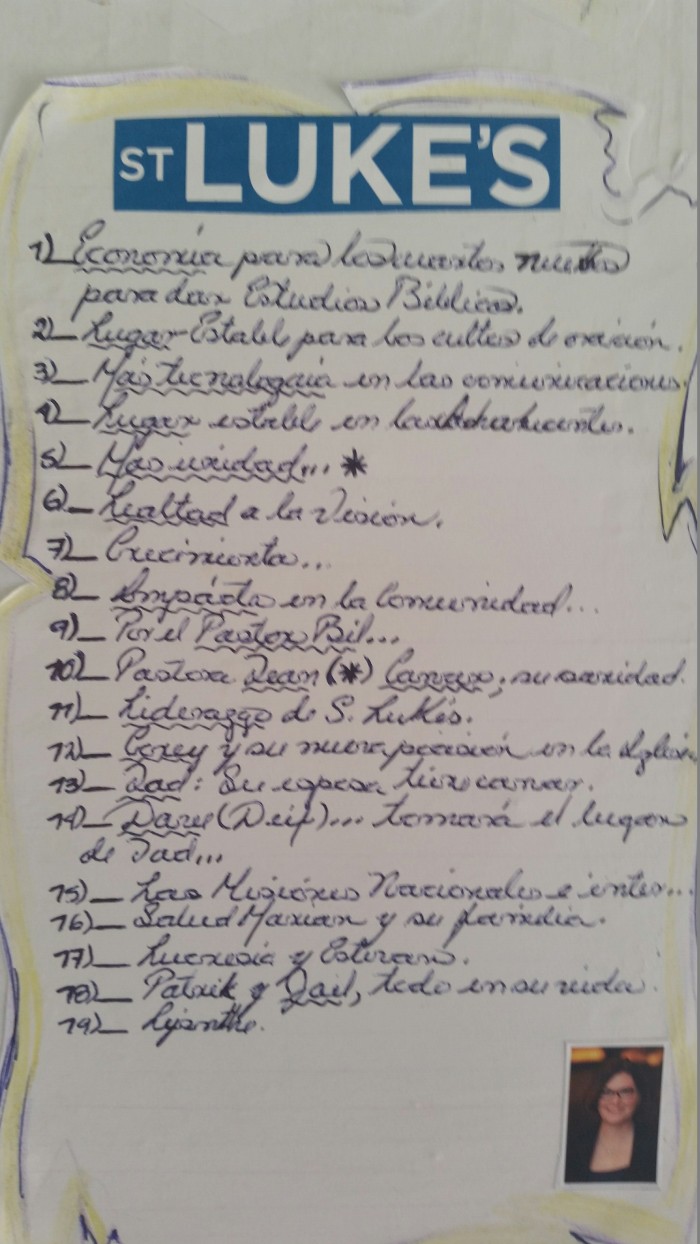 ST LUKE'S
1)_ Economía para los cuartos nuevos
para dar Estudios Bíblicos.
2)_ Lugar Estable para los cultos de oración.
3)_ Más tecnologaia en las comunicaciones.
4)_ Lugar estable en
5)_ Mas unidad... *
6)_ Lealtad a la Visión.
7)_ Crecimiento...
8)_ Impacto en la Comunidad...
9)_ Por el Pastor Bil...
10)_ Pastora Jean (*) Cancer, su sanidad.
11)_ Liderazgo de S. Lukés.
12)_ Corey y su nueva posición en la Iglesia
13)_ Jad: Su esposa tiene cancer.
14)_ Dave (Deif)... tomará el lugar
de Jad...
15)_ Las Misiónes Nacionales e inter...
16)_ Salud Marian y su familia.
17)_ Lucresia y Estevan.
18)_ Patrik y Gail, todo en su vida.
19)_